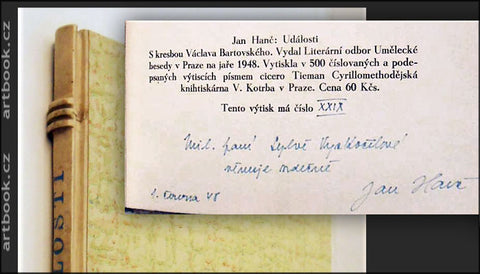 artbook.cz
artbook.cz
LOSTI
Jan Hanč: Události
S kresbou Václava Bartovského. Vydal Literární odbor Umělecké
besedy v Praze na jaře 1948. Vytiskla v 500 číslovaných a pode-
psaných výtiscích písmem cicero Tieman Cyrillomethodějská
knihtiskárna V. Kotrba v Praze. Cena 60 Kčs.
Tento výtisk má číslo XXIX
Mil. paní
věnuje srdečně
Jan Hanč
1. června 48